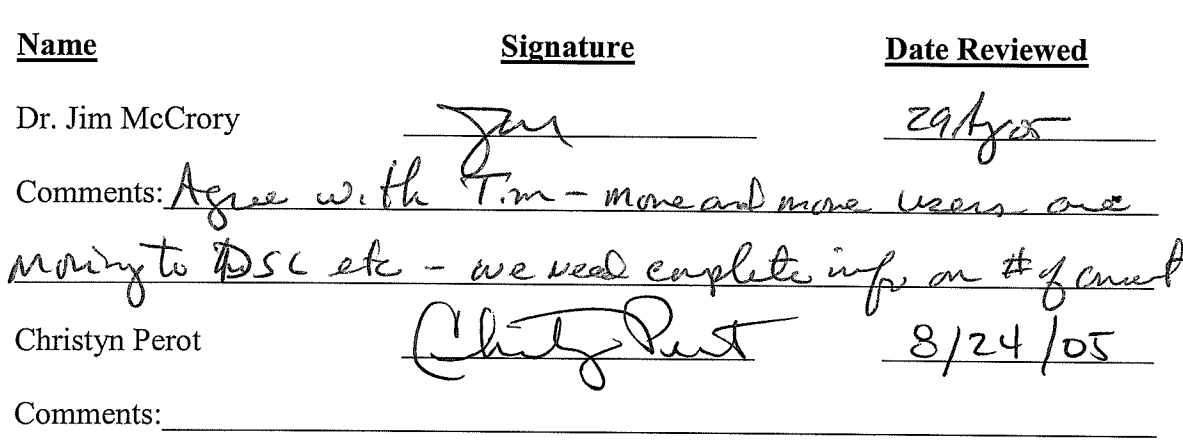 Name Signature Date Reviewed
Dr. Jim McCrory Jim 29 Aug 05
Comments: Agree with Tim - more and more users are
moving to DSC etc - we need complete info on # of
Christyn Perot Christyn Perot 8/24/05
Comments: